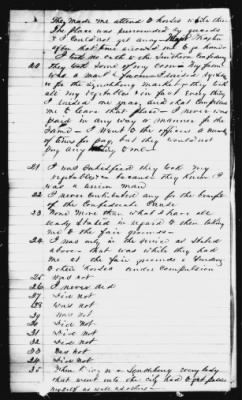 They made me attend to horses while there
The place was surrounded by guards
& I could not get away
after that time allowed me to go home
me take the oath to the Southern Confederacy
20 They took some of my corn My farm
was a market farm I raised
for the Lynchburg market they took
all my vegetables in fact every thing
I raised one year, and that compelled
me to leave that place - I was never
paid in any way or manner for the
Same - I went to the officers a number
of times for pay, but they would not
pay any thing to me -
21 I was They took my
vegetables because they knew I
was a union man
22 I never contributed any for the benefit
of the Confederate
23. None More than what I have all
ready Stated in regard to their taking
me to the fair grounds -
24. I was only in the service as Stated
above - that was while they had
me at the fair grounds
to their horses under Compulsion
25 Was not
26 I never did
27. Did not
28 Was not
29 Was not
30 Did not
31 Did not
32 Did not
33 Was not
34 Did not
35 When living in Lynchburg every body
that went into the city had to get passes
myself as well as others -